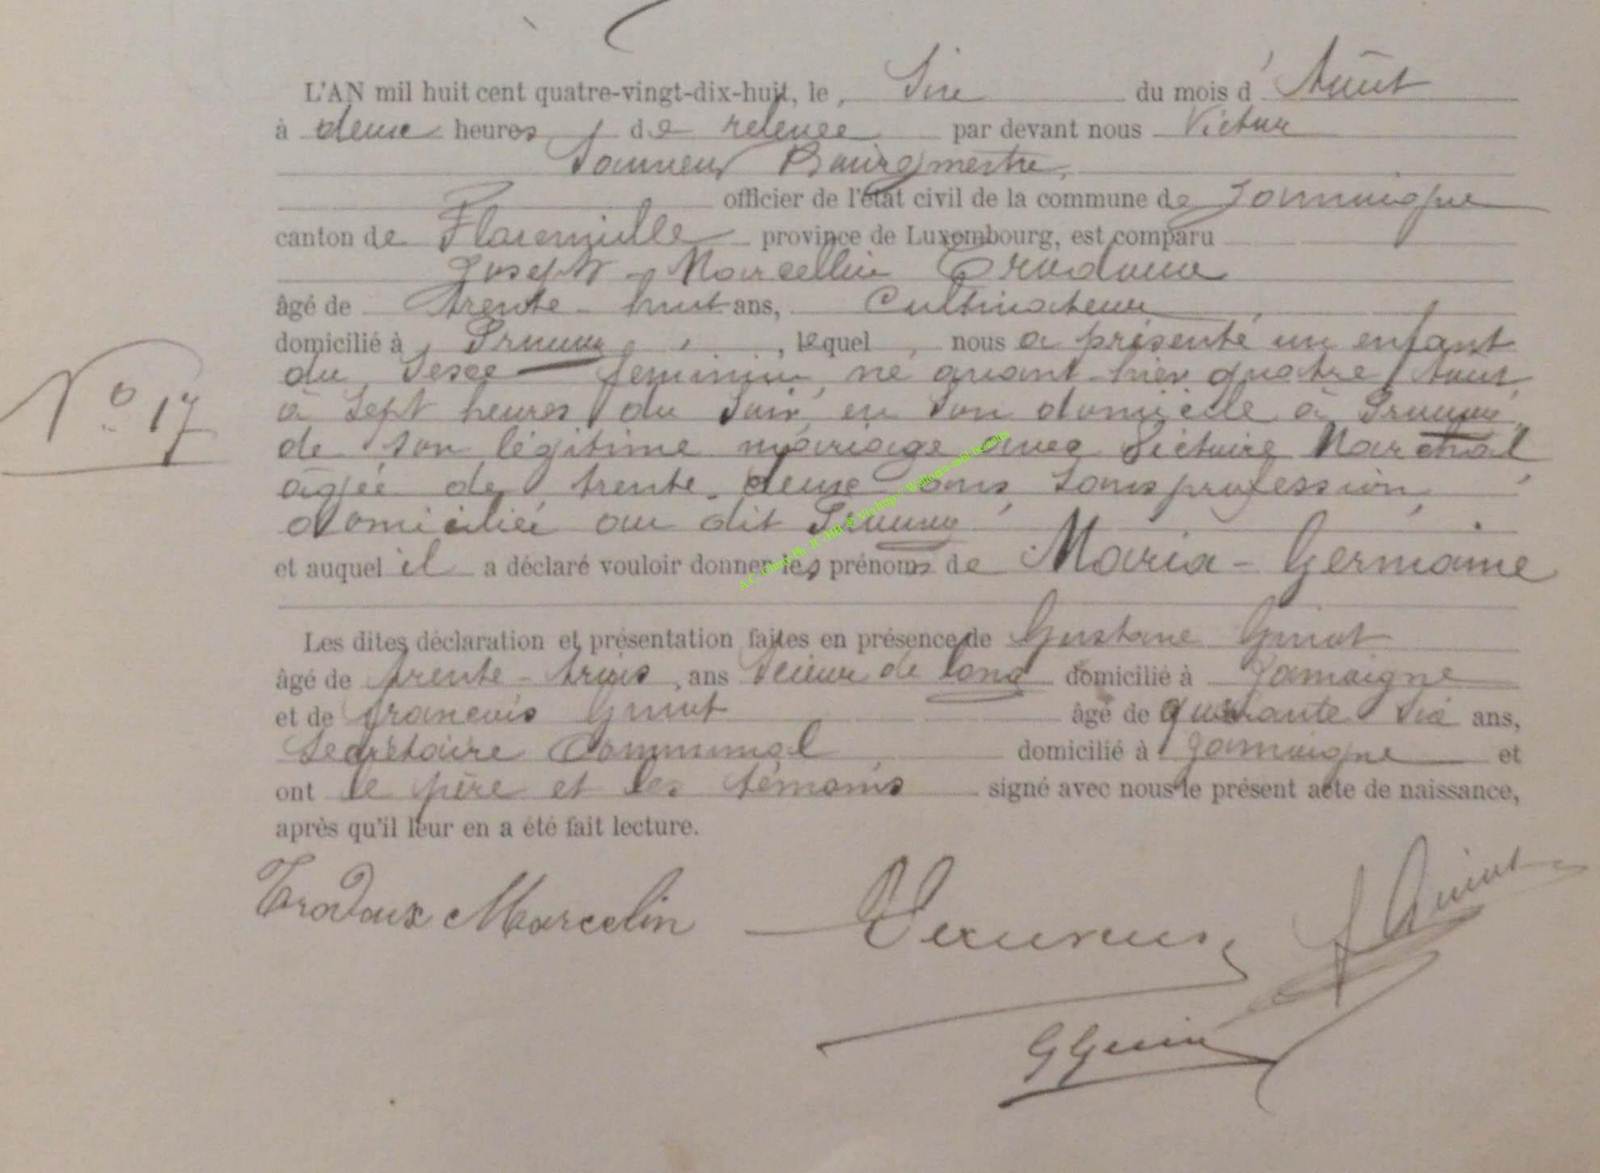 L'AN mil huit cent quatre-vingt-dix-huit, le Sixe du mois d'Août
à deux heures de relevée par devant nous Victor
Bourgmestre,
officier de l'état civil de la commune de Jamoigne
canton de Florenville province de Luxembourg, est comparu
Joseph-Marcellin Trodoux
âgé de trente-huit ans, Cultivateur
domicilié à Prouvy, lequel nous a présenté un enfant
du Sexe feminin, né avant-hier quatre Aout
à Sept heures du Soir, en Son domicile à Prouvy,
de son légitime mariage avec Victoire Marchal,
âgée de trente-deux ans, Sans profession,
domiciliée au dit Prouvy.
et auquel il a déclaré vouloir donner les prénoms de Maria-Germaine
Les dites déclaration et présentation faites en présence de Gustave Guiot
âgé de trente-trois ans Scieur de long domicilié à Jamoigne
et de François Guiot âgé de quarante Six ans,
Secrétaire Communal domicilié à Jamoigne et
ont le père et les témoins signé avec nous le présent acte de naissance,
après qu'il leur en a été fait lecture.
N° 17
Trodoux Marcelin
F Guiot
G Guiot